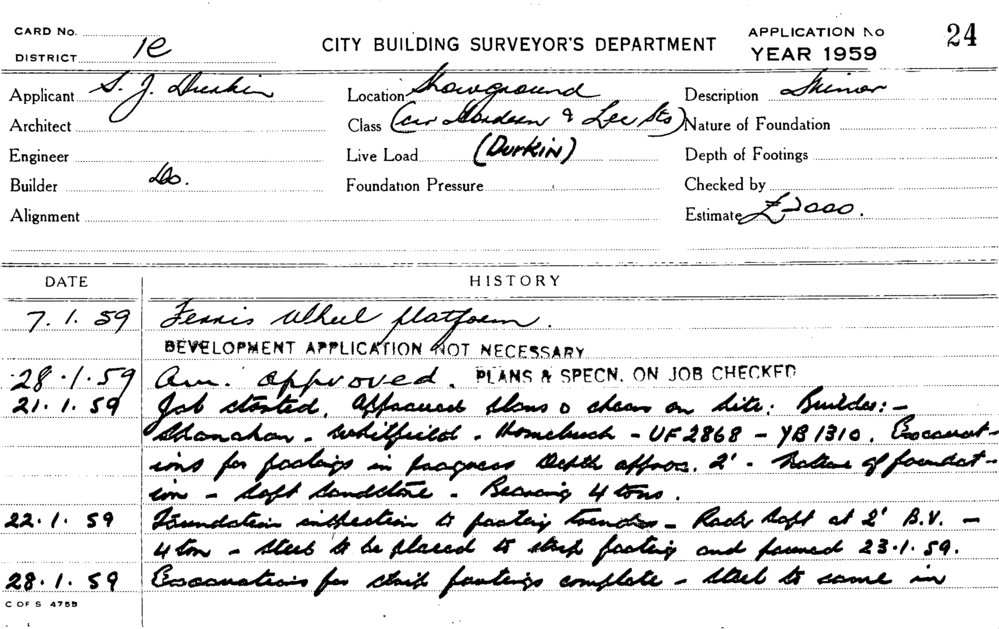 CARD No. CITY BUILDING SURVEYOR'S DEPARTMENT APPLICATION No 24
DISTRICT 1e YEAR 1959
Applicant S. J. Durkin Location Showground Description Minor
Architect Class (cnr Gordon & Lee Sts) Nature of Foundation
Engineer Live Load (Durkin) Depth of Footings
Builder do. Foundation Pressure Checked by
Alignment Estimate £2000.
DATE HISTORY
7. 1. 59 Ferris Wheel platform.
DEVELOPMENT APPLICATION NOT NECESSARY
28.1.59 approved. PLANS & SPECN. ON JOB CHECKED
21. 1. 59 Job started. Approved plans on site. Builder:-
Shanahan - Whitfield - Homebush - UF2868 - YB1310. Excavat-
ions for footings in progress Depth approx. 2' - Nature of foundat-
ion - soft sandstone - Bearing 4 tons.
22. 1. 59 Foundation inspection to footing trenches - Rock soft at 2' B.V. -
4 ton - steel to be placed to strip footing and poured 23.1.59.
28. 1. 59 Excavations for strip footings complete - steel to same in
C OF S 4755